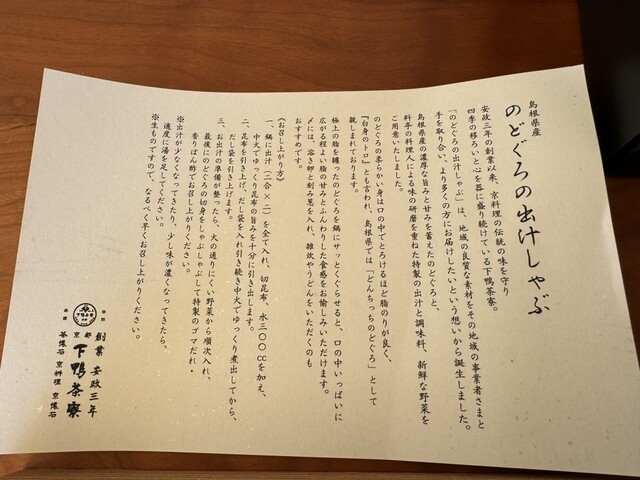 島根県産
のどぐろの出汁しゃぶ
安政三年の創業以来、京料理の伝統の味を守り
四季の移ろいと心を器に盛り続けている下鴨茶寮。
「のどぐろの出汁しゃぶ」は、地域の良質な素材をその地域の事業者さまと
手を取り合い、より多くの方にお届けしたいという想いから誕生しました。
島根県産の濃厚な旨みと甘みを蓄えたのどぐろと、
料亭の料理人による味の研磨を重ねた特製の出汁と調味料、新鮮な野菜を
ご用意いたしました。
のどぐろの柔らかい身は口の中でとろけるほど脂のりが良く、
『白身のトロ』とも言われ、島根県では「どんちっちのどぐろ」として
親しまれております。
極上の脂を纏ったのどぐろを鍋にサッとくぐらせると、口の中いっぱいに
広がる程よい脂の甘みとふんわりした食感をお愉しみいただけます。
〆には、溶き卵と刻み葱を入れ、雑炊やうどんをいただくのも
おすすめです。
《お召し上がり方》
一、鍋に出汁（二合×二）を全て入れ、切昆布、水三〇〇ccを加え、
中火でゆっくり昆布の旨みを十分に引き出します。
二、昆布を引き上げ、だし袋を入れ引き続き中火でゆっくり煮出してから、
だし袋を引き上げます。
三、お出汁の準備が整ったら、火の通りにくい野菜から順次入れ、
最後にのどぐろの切身をしゃぶしゃぶして特製のゴマだれ・
香りぽん酢でお召し上がりください。
※出汁が少なくなってきたり、少し味が濃くなってきたら、
適度に湯を足してください。
※生ものですので、なるべく早くお召し上がりください。
創業 安政三年
京都 下鴨茶寮
茶懐石 京料理 京懐石